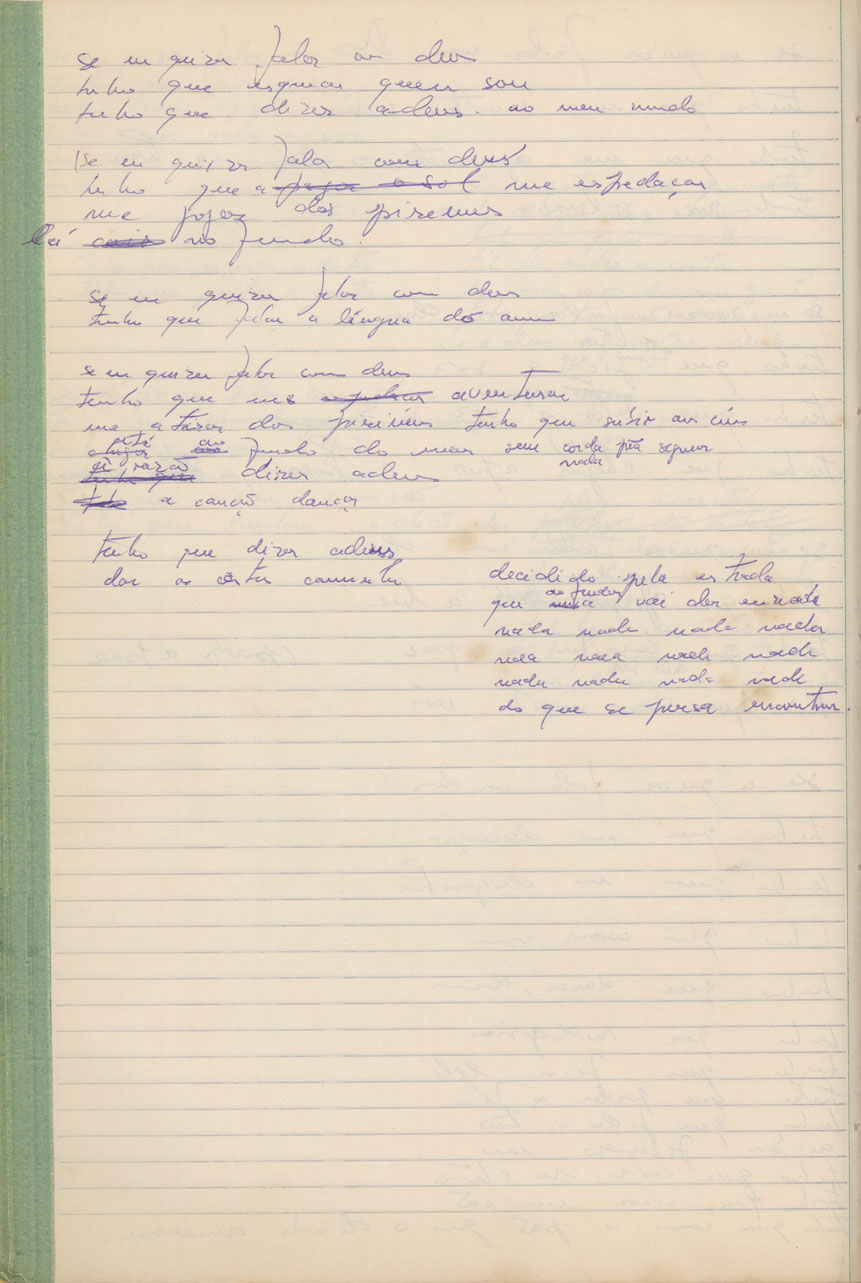 se eu quizer falar com deus
tenho que esquecer quem sou
tenho que dizer adeus ao meu mundo
se eu quizer falar com deus
tenho que a pegar o sol me espedaçar
me jogar dos pireneus
lá no fundo.
se eu quizer falar com deus
tenho que falar a língua do
se eu quizer falar com deus
tenho que me aventurar
me atirar dos pirineus tenho que subir aos céus
ao fundo do mar sem corda prá segurar
nada
razão dizer adeus
a canção dançar
tenho que dizer adeus
dar as costas caminhar
decidido pela estrada
que ao findar vai dar em nada
nada nada nada nada
nada nada nada nada
nada nada nada nada
do que se pensa encontrar.